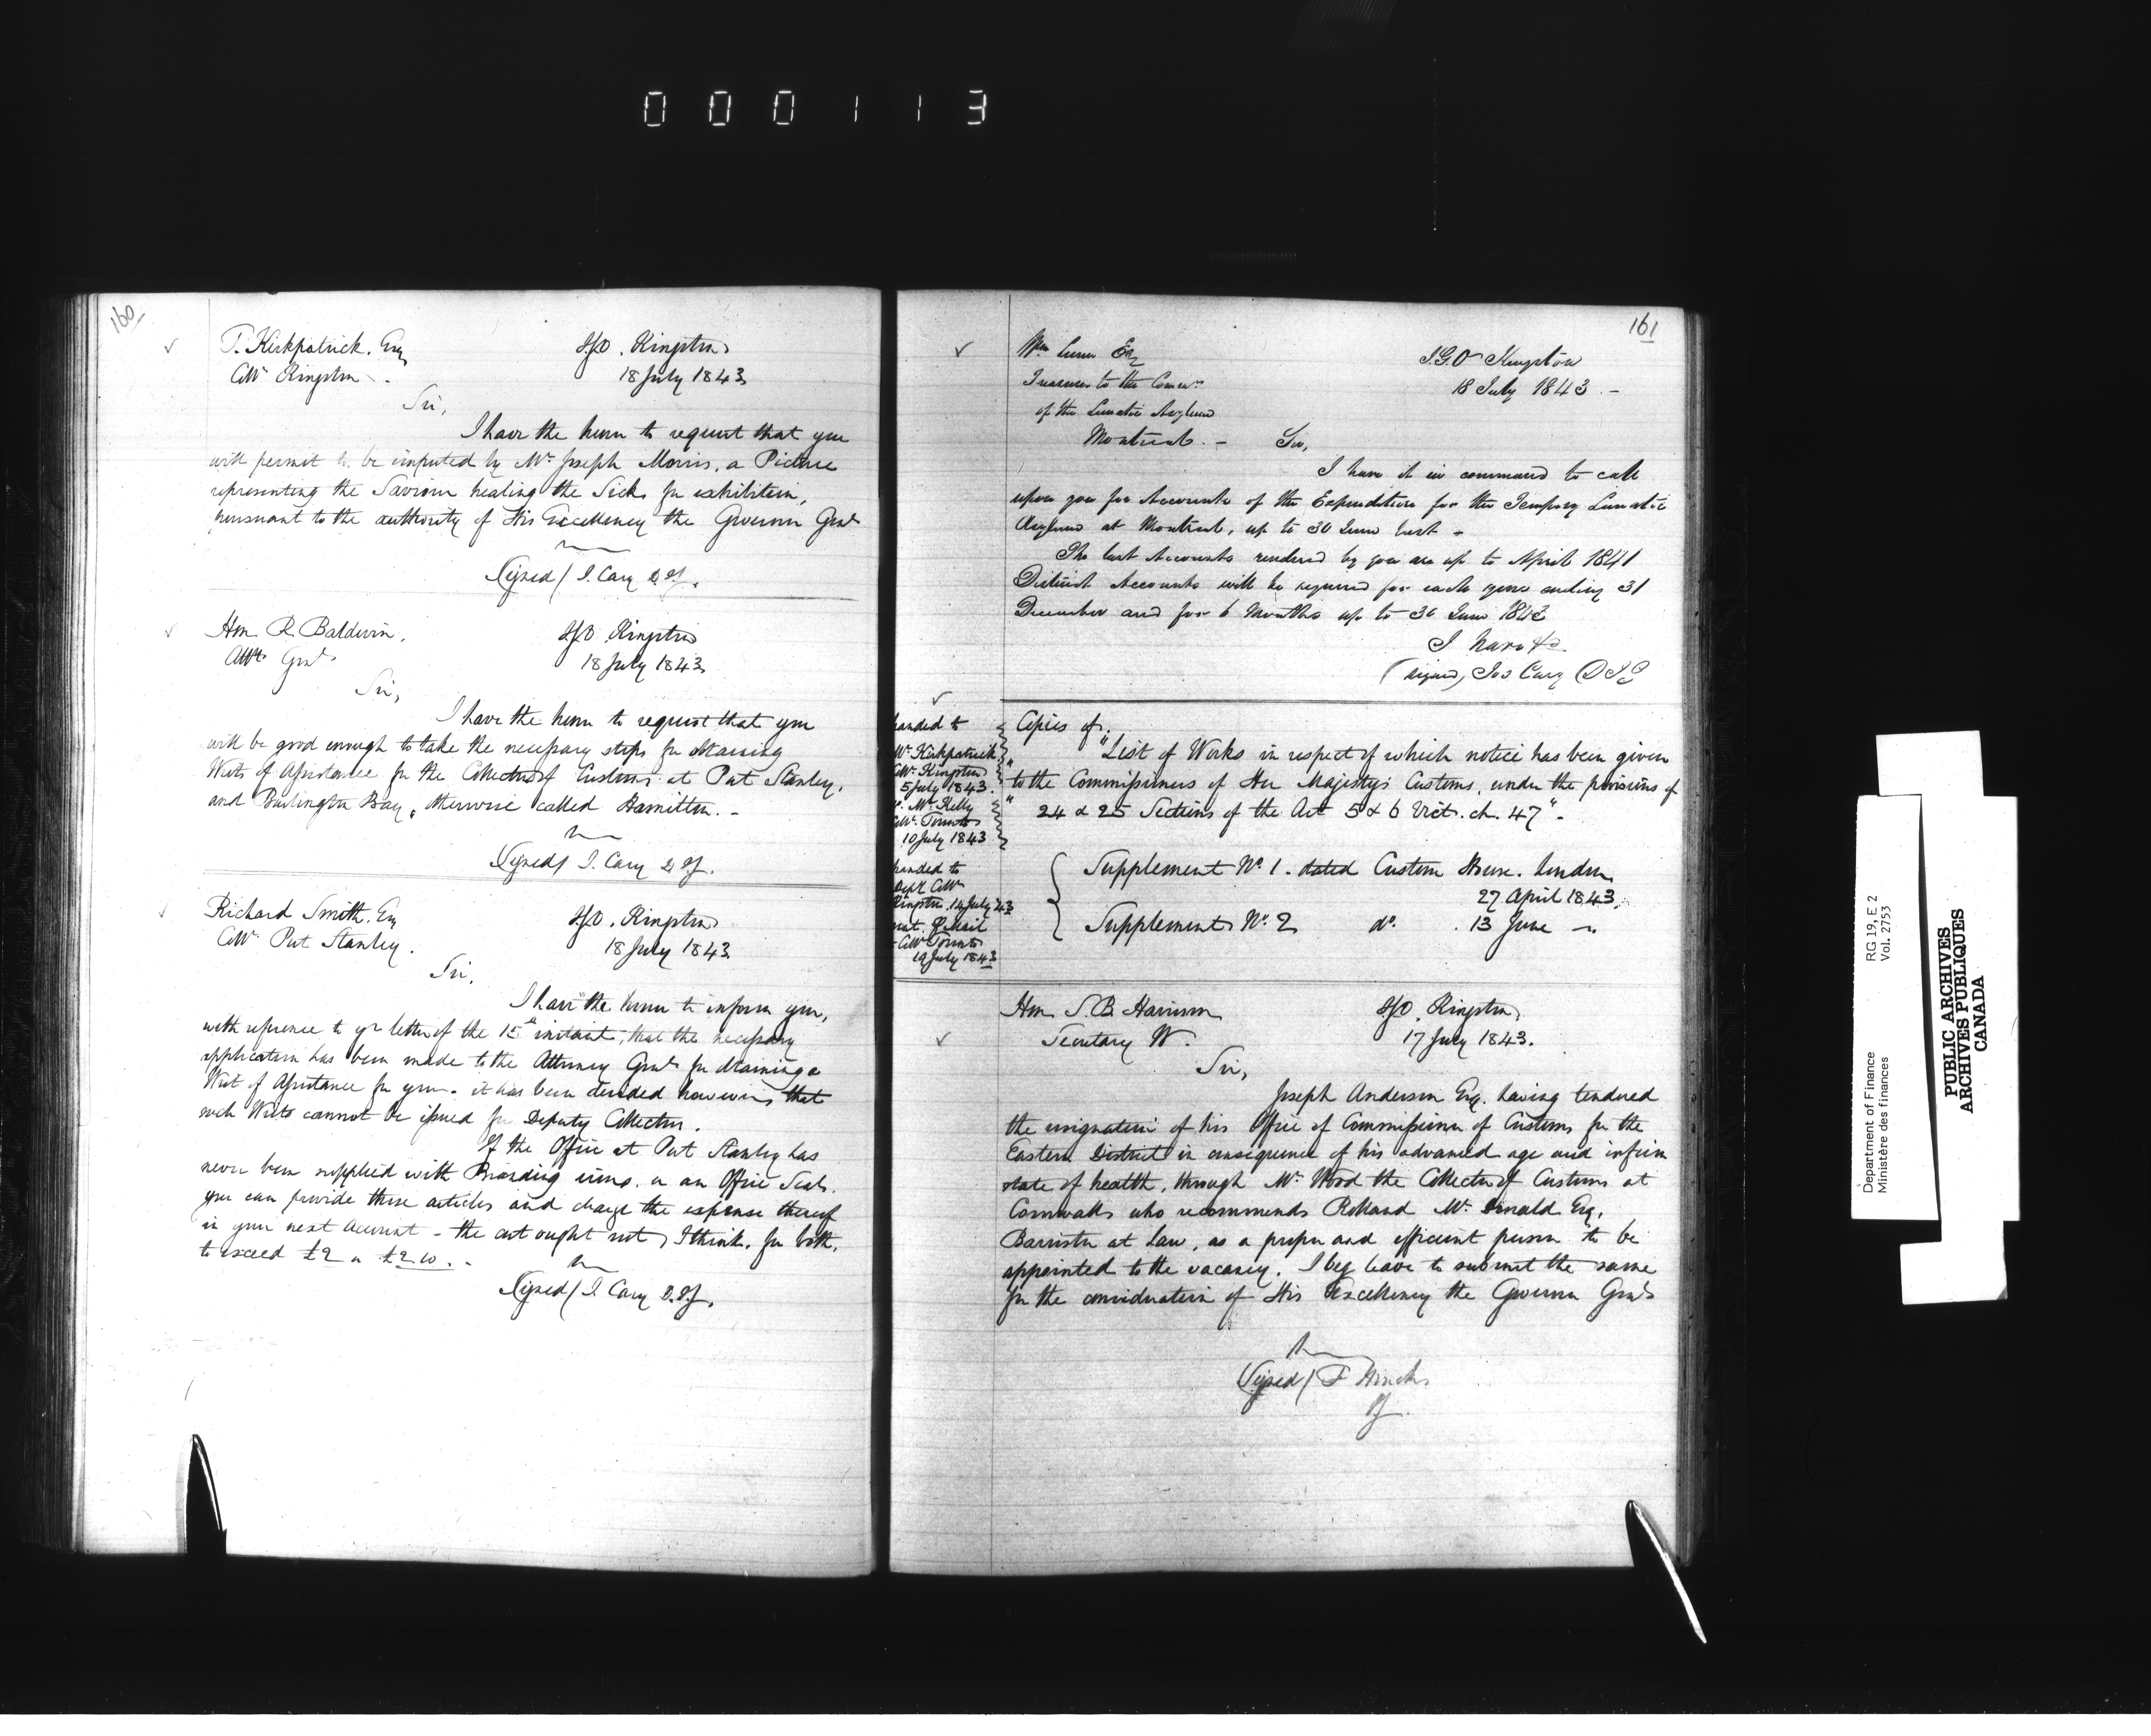 000113
160
T. Kirkpatrick. Esq
Collr Kingston.
I.G.O. Kingston
18 July 1843
Sir,
I have the honor to request that you
will permit to be imported by Mr. Joseph Morris, a Picture
representing the Saviour healing the Sick, for exhibition,
pursuant to the authority of His Excellency the Governor Genl
Signed/ J. Cary D.I.G.
Hon R. Baldwin,
Atty Genl
I.G.O. Kingston
18 July 1843
Sir,
I have the honor to request that you
will be good enough to take the necessary steps for obtaining
Writs of Assistance for the Collectors of Customs at Port Stanley,
and Burlington Bay, otherwise called Hamilton. -
Signed/ J. Cary D.I.G.
Richard Smith. Esq
Collr Port Stanley.
I.G.O. Kingston
18 July 1843
Sir,
I have the honor to inform you,
with reference to yr letter of the 15th instant, that the necessary
application has been made to the Attorney Genl for obtaining a
Writ of Assistance for you. it has been decided however that
such Writs cannot be issued for Deputy Collectors.
If the Office at Port Stanley has
never been supplied with Branding irons, or an Office Seal,
you can provide these articles and charge the expense thereof
in your next Account - the cost ought not, I think, for both,
to exceed £2 or £2.10. -
Signed/ J. Cary D.I.G.
161
Wm Lunn Esq
Treasurer to the Commrs
of the Lunatic Asylum
Montreal. -
I.G.O Kingston
18 July 1843. -
Sir,
I have it in command to call
upon you for Accounts of the Expenditure for the Tempory Lunatic
Asylum at Montreal, up to 30 June last -
The last Accounts rendered by you are up to April 1841
Distinct Accounts will be required for each year ending 31
December and for 6 Months up to 30 June 1843
I have &c
(signed) Jos Cary D I G
handed to
Mr. Kirkpatrick
Collr. Kingston
5 July 1843.
Mr. Kelly
Collr. Toronto
10 July 1843
Copies of.
"List of Works in respect of which notice has been given
"to the Commissioners of Her Majesty's Customs, under the provisions of
" 24 & 25 Sections of the Act 5 & 6 Vict. ch. 47" -
handed to
Depy Collr
Kingston. 14 July 43
Mail
Collr Toronto
19 July 1843
Supplement No. 1. dated Custom House. London
27 April 1843.
Supplement No. 2 do. 13 June -
Hon S. B. Harrison
Secretary W.
I.G.O. Kingston
17 July 1843.
Sir,
Joseph Anderson Esq. having tendered
the resignation of his Office of Commissioner of Customs for the
Eastern District in consequence of his advanced age and infirm
state of health, through Mr. Wood the Collector of Customs at
Cornwall, who recommends Rolland Mc Donald Esq.
Barrister at Law, as a proper and efficient person to be
appointed to the vacancy. I beg leave to submit the same
for the consideration of His Excellency the Governor Genl
Signed/ F Hincks
I.G.
Department of Finance
Ministère des finances
RG 19, E 2
Vol. 2753
PUBLIC ARCHIVES
ARCHIVES PUBLIQUES
CANADA